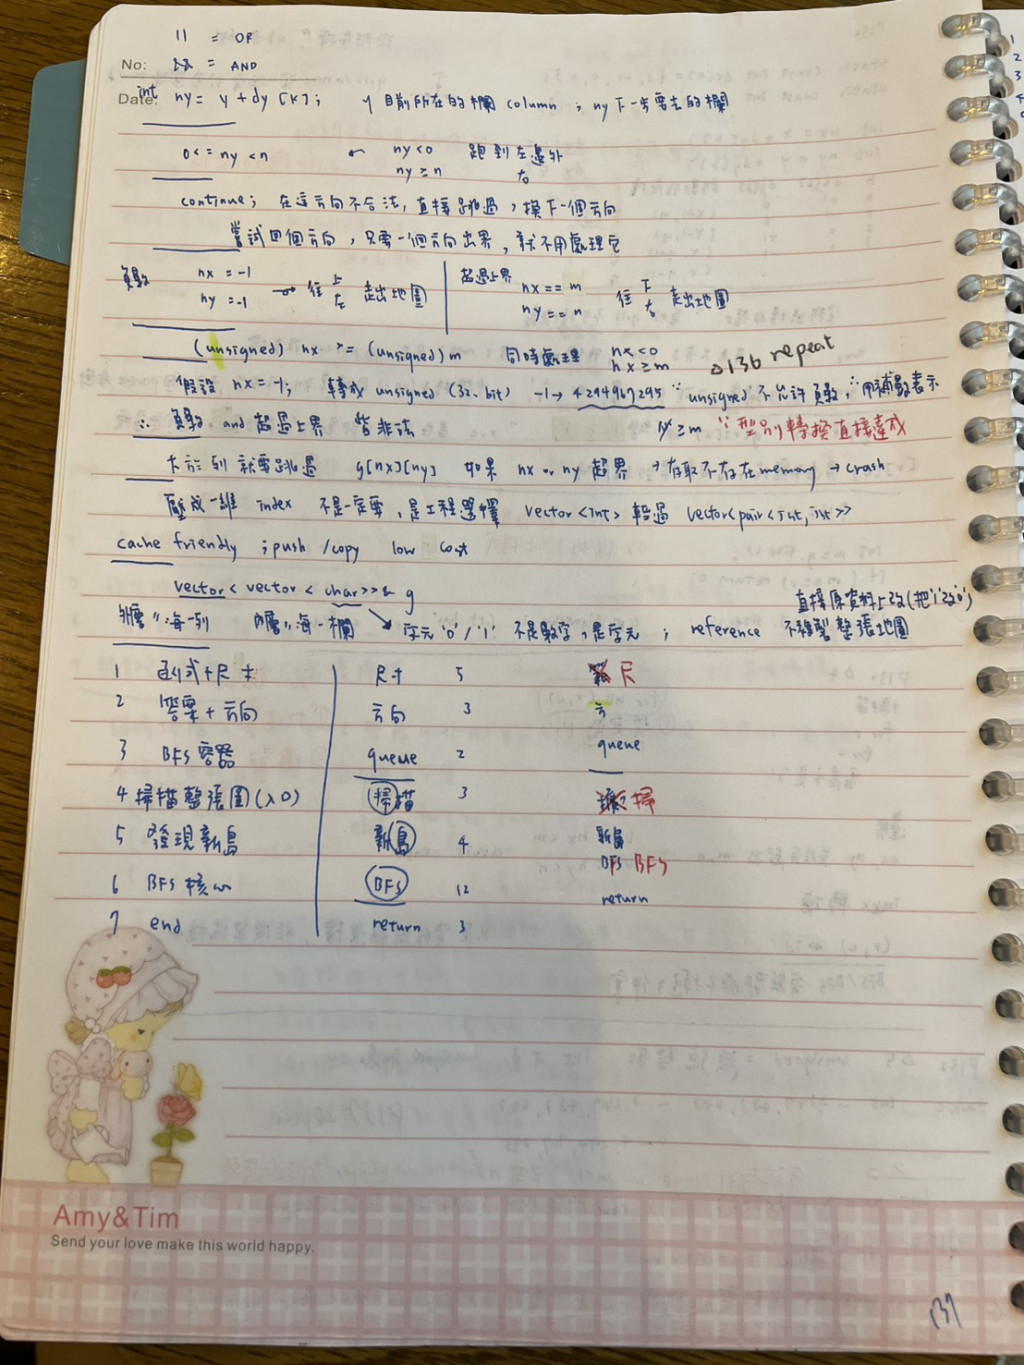 || = OR
No: && = AND
Date: int ny = y + dy [k] ; y 目前所在的欄 column ; ny 下一步要去的欄
0 <= ny < n ← ny < 0 跑到左邊外
ny ≥ n 右
continue; 在這方向不合法，直接跳過，換下一個方向
嘗試四個方向，只要一個方向出界，就不用處理它
負數 nx = -1 → 往上 走出地圖
ny = -1 左
超過上界 nx == m 往下 走出地圖
ny == n 右
(unsigned) nx >= (unsigned) m 同時處理 nx < 0
nx ≥ m
△136 repeat
假設 nx = -1; 轉成 unsigned (32-bit) -1 → 4294967295 ∵ unsigned 不允許負數, ∴ 用補數表示
∴ 負數 and 超過上界 皆非法 ≥ m ∵ 型別轉換直接達成
大於列 就要跳過 g[nx][ny] 如果 nx or ny 超界 → 存取不存在 memory → crash
壓成一維 index 不是一定要，是工程選擇 vector<int> 輕過 vector<pair<int,int>>
cache friendly ; push / copy low cost
vector< vector < char>>& g
直接原資料上改(把'1'改'0')
外層 ∵ 每一列 內層 ∵ 每一欄 → 字元 '0' / '1' 不是數字，是字元 ; reference 不複製整張地圖
1 函式+尺寸 尺寸 5 尺
2 答案+方向 方向 3 方
3 BFS 容器 queue 2 queue
4 掃描整張圖(入口) 掃描 3 掃
5 發現新島 新島 4 新島
6 BFS 核心 BFS 12 BFS BFS
7 end return 3 return
Amy&Tim
Send your love make this world happy.
137